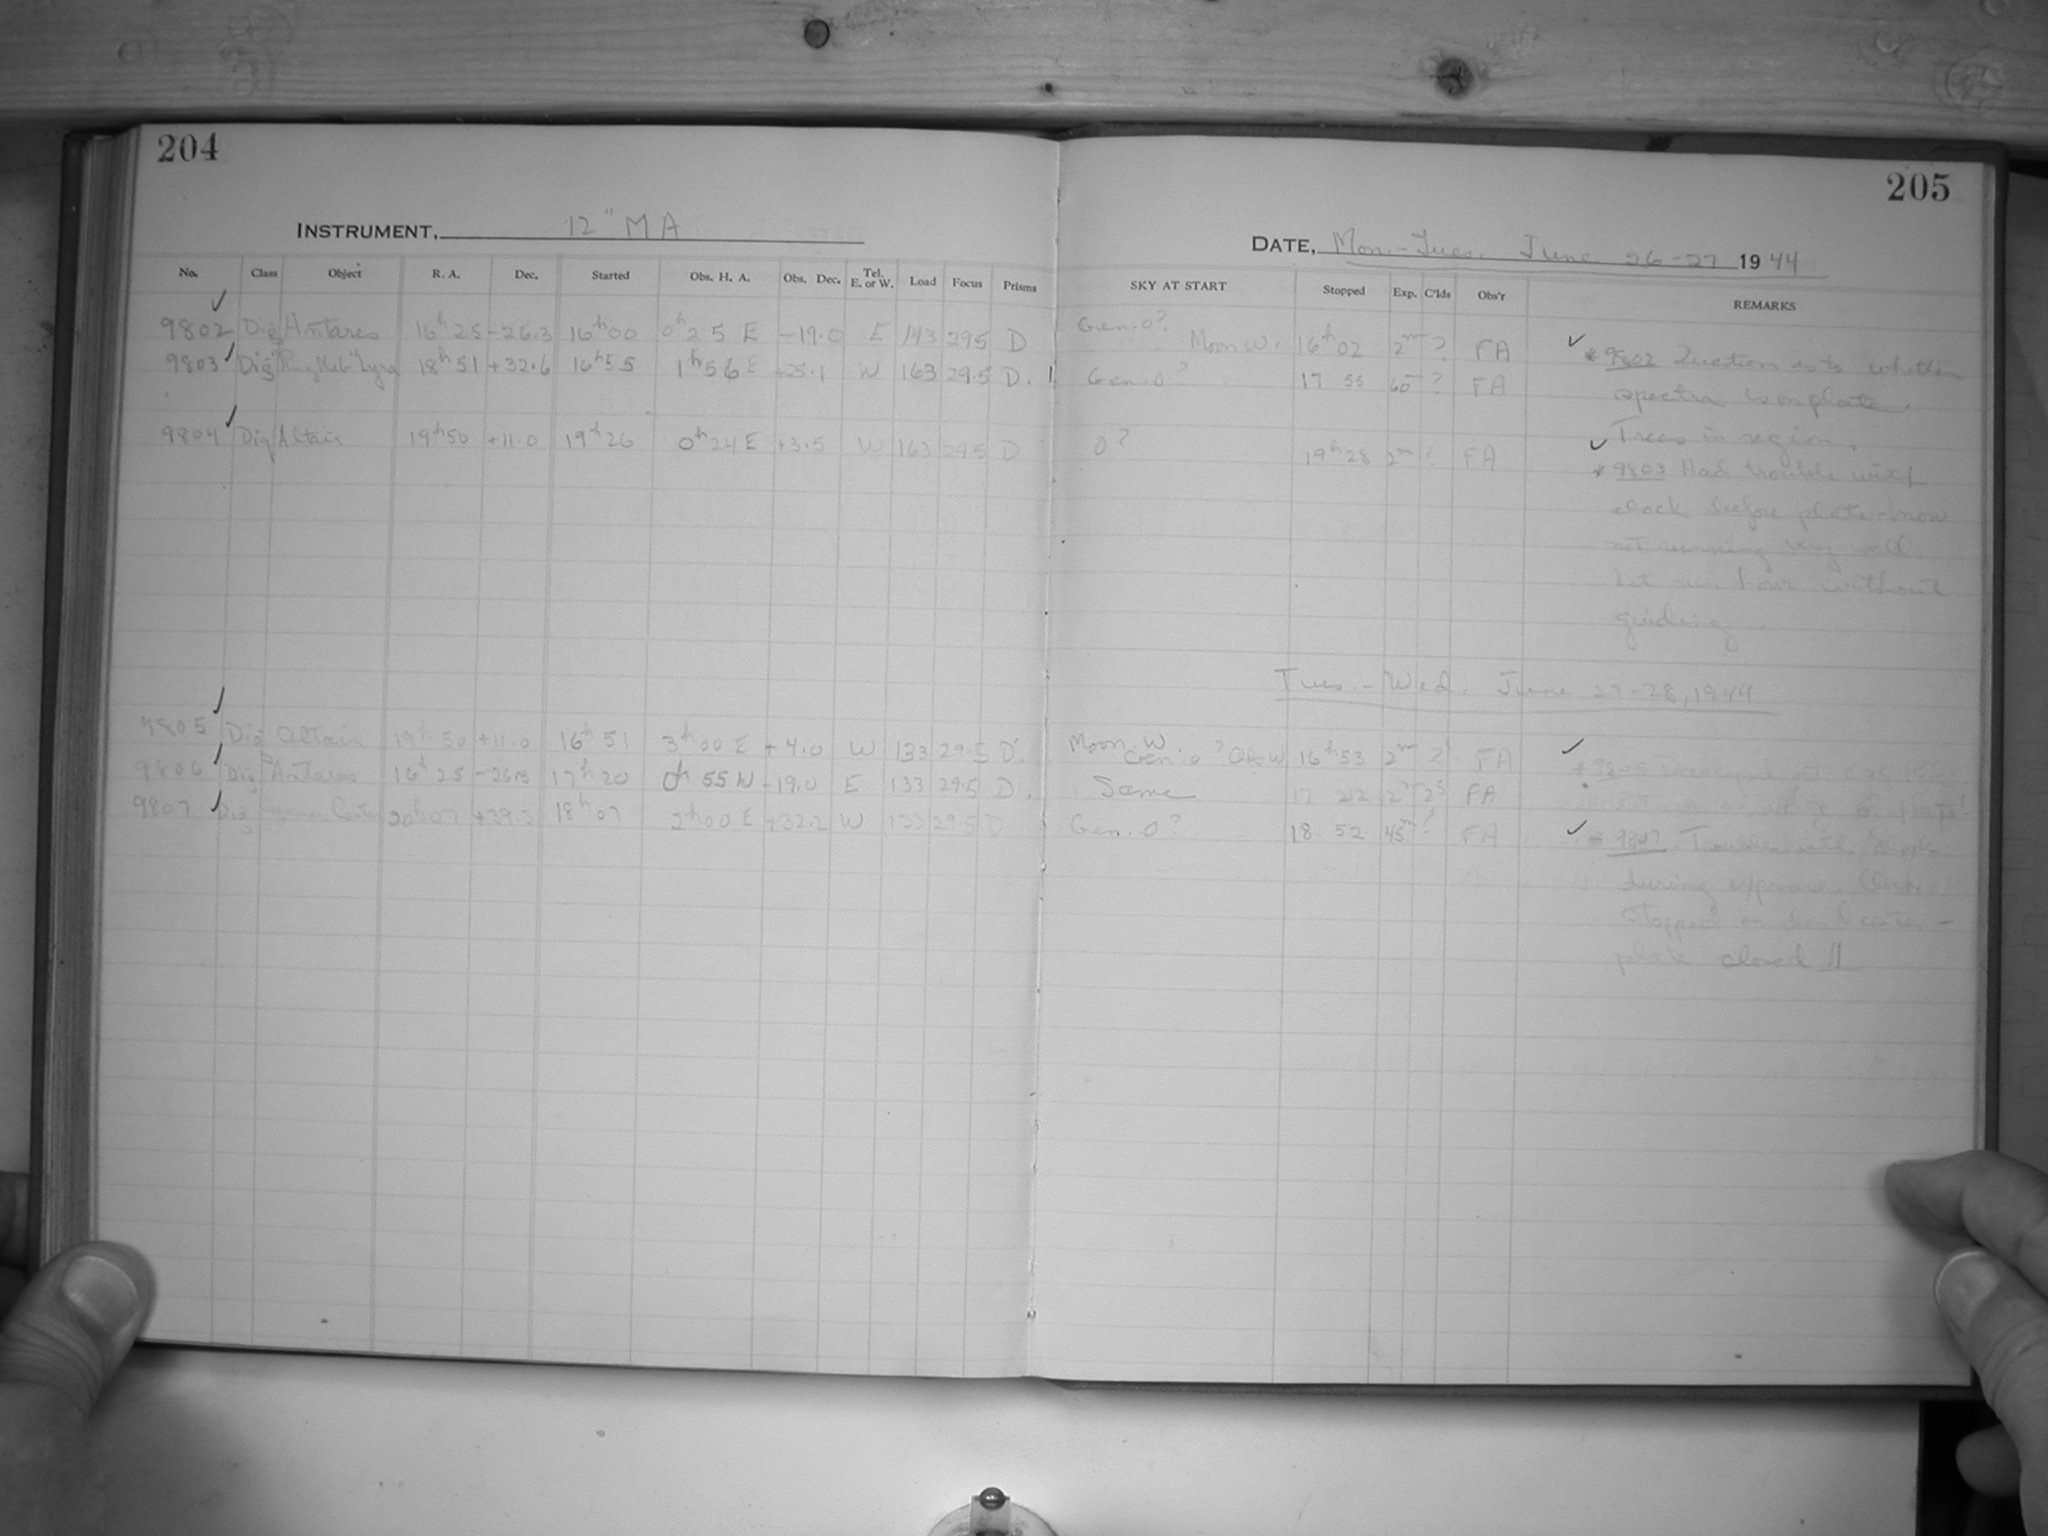 204
INSTRUMENT, 12" MA
No. Class Object R. A. Dec. Started Obs. H. A. Obs. Dec. Tel. E. or W. Load Focus Prisms
9802 Dig Antares 16h 25 -26.3 16h00 0h 25 E -19.0 E 143 295 D
9803 Dig "Ring Neb" Lyra 18h 51 +32.6 16h55 1h 56 E +25.1 W 163 29.5 D.
9804 Dig Altair 19h50 +11.0 19h26 0h24 E +3.5 W 163 29.5 D
9805 Dig Altair 19h 50 +11.0 16h 51 3h 00 E +4.0 W 133 29.5 D.
9806 Dig Antares 16h 25 17h 20 0h 55 W -19.0 E 133 29.5 D.
9807 Dig 20h07 +39.3 18h07 2h00 E +32.2 W 133 29.5 D
205
DATE, Mon.-Tues. June 26-27 1944
SKY AT START Stopped Exp. C'lds Obs'r REMARKS
Gen. 0?
Moon W. 16h 02 2m ? FA
Gen. 0? 17 55 60m ? FA
0? 19h 28 2m ? FA
* 9802 Question as to whether
spectra is on plate.
Trees in region.
* 9803 Had trouble with
clock before plate - now
not running very well.
Let run hour without
guiding.
Tues.-Wed. June 27-28, 1944
Moon W.
Gen. 0? 16h 53 2m ? FA
Same 17 22 2m FA
Gen. 0? 18 52 45m ? FA
* 9807 Trouble with
during exposure. Clock
stopped on dead center -
plate closed !!